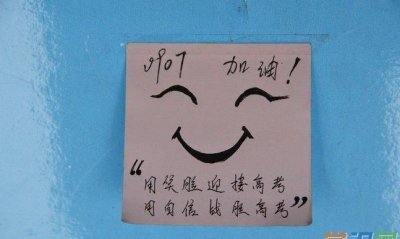 0907 加油!
“用笑脸迎接高考
用自信战胜高考”